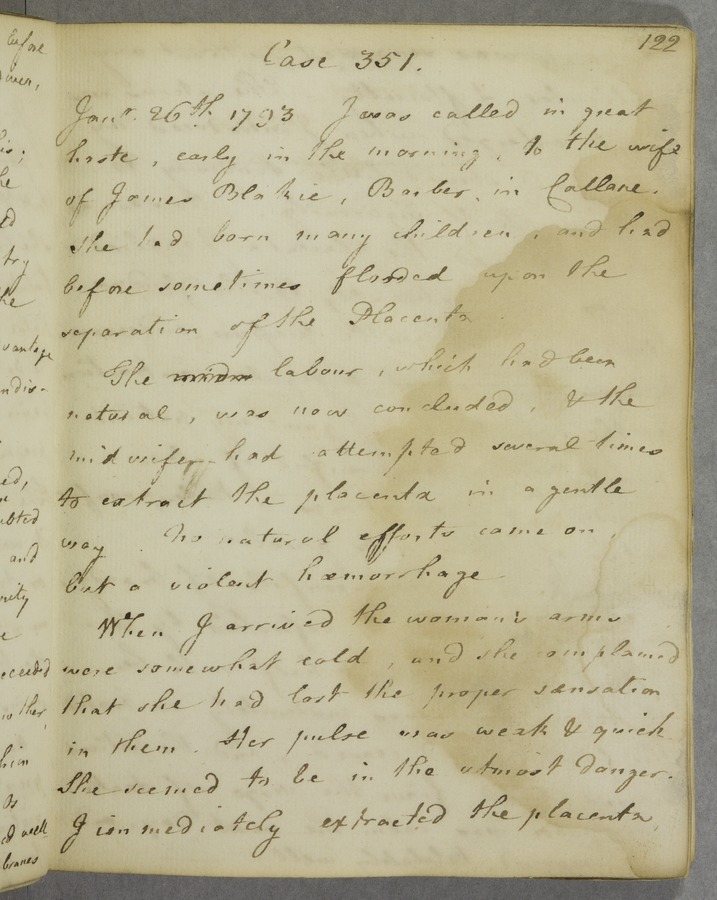 122
Case 351.
Janr. 26th 1793 I was called in great
haste, early in the morning, to the wife
of James Blakie, Barber, in Callane.
She had born many children, and had
before sometimes flooded upon the
separation of the Placenta.
The labour, which had been
natural, was now concluded, & the
midwife had attempted several times
to extract the placenta in a gentle
way. No natural efforts came on,
but a violent hæmorrhage.
When I arrived the woman's arms
were somewhat cold, and she complained
that she had lost the proper sensation
in them. Her pulse was weak & quick
She seemed to be in the utmost danger.
I immediately extracted the placenta,